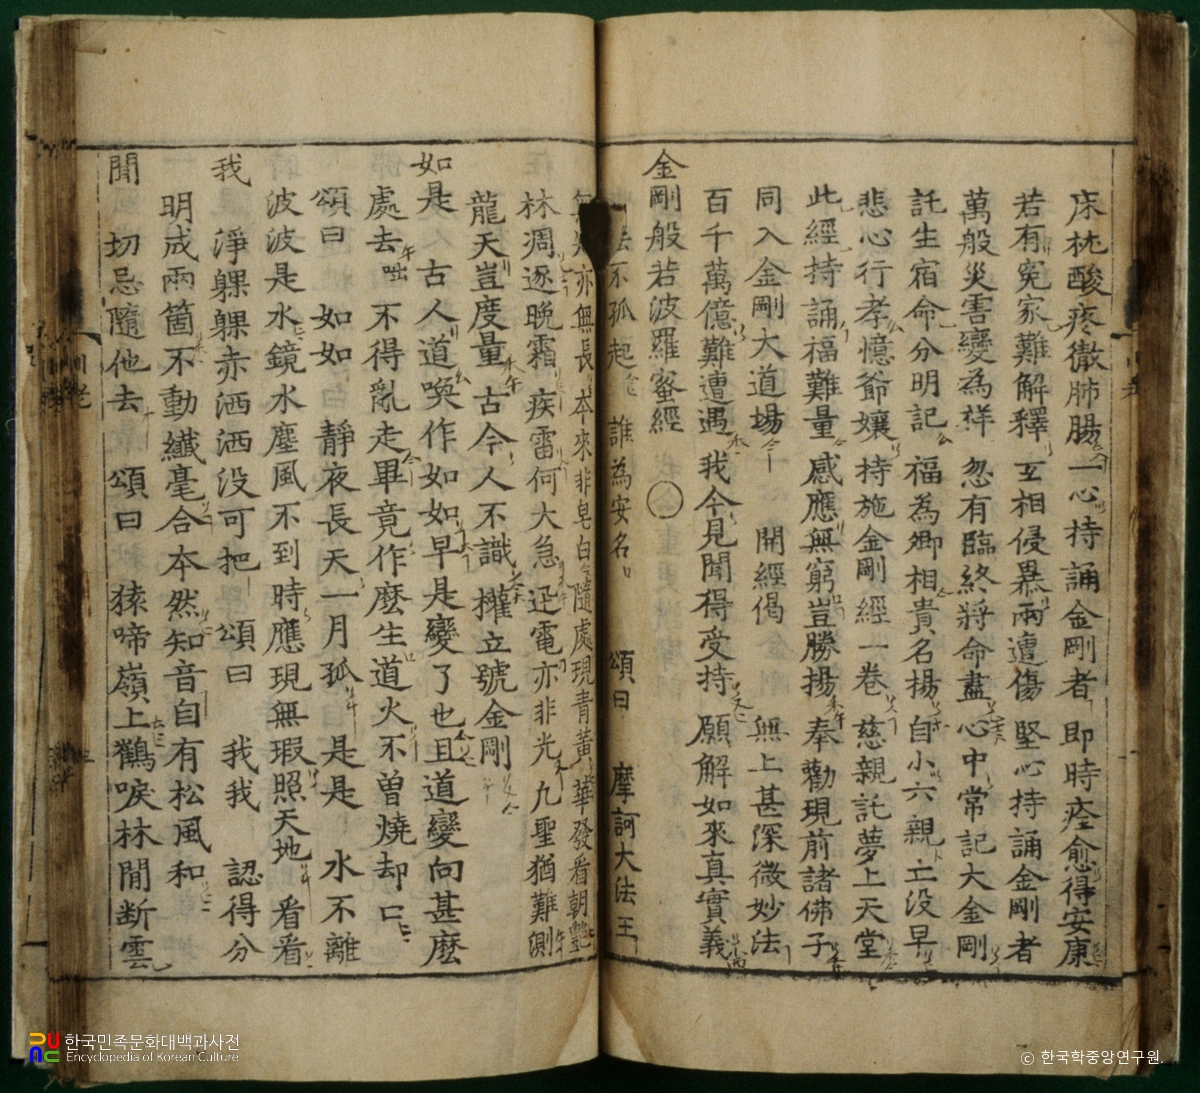 床枕酸疼徹肺腸一心持誦金剛者 即時痊愈得安康
若有冤家難解釋 互相侵暴兩遭傷 堅心持誦金剛者
萬般災害變為祥 忽有臨終將命盡 心中常記大金剛
託生宿命分明記 福為卿相貴名揚 自小六親亡没早
悲心行孝憶爺孃 持施金剛經一卷 慈親託夢上天堂
此經持誦福難量 感應無窮豈勝揚 奉勸現前諸佛子
同入金剛大道場 開經偈 無上甚深微妙法
百千萬億難遭遇 我今見聞得受持 願解如來真實義
金剛般若波羅蜜經
法不孤起 誰為安名 頌曰 摩訶大法王
無短亦無長 本來非皂白 隨處現青黃 華發看朝艶
林凋逐晚霜 疾雷何大急 迅電亦非光 凡聖猶難測
龍天豈度量 古今人不識 權立號金剛
如是 古人道喚作如如早是變了也且道變向甚麽
處去 咄 不得亂走畢竟作麽生道火不曾燒却口
頌曰 如如 靜夜長天一月孤 是是 水不離
波波是水 鏡水塵風不到時 應現無瑕照天地 看看
我 淨躶躶赤洒洒没可把 頌曰 我我 認得分
明成兩箇 不動纖毫合本然 知音自有松風和
聞 切忌隨他去 頌曰 猿啼嶺上 鶴唳林間 断雲
한국민족문화대백과사전
Encyclopedia of Korean Culture
© 한국학중앙연구원.